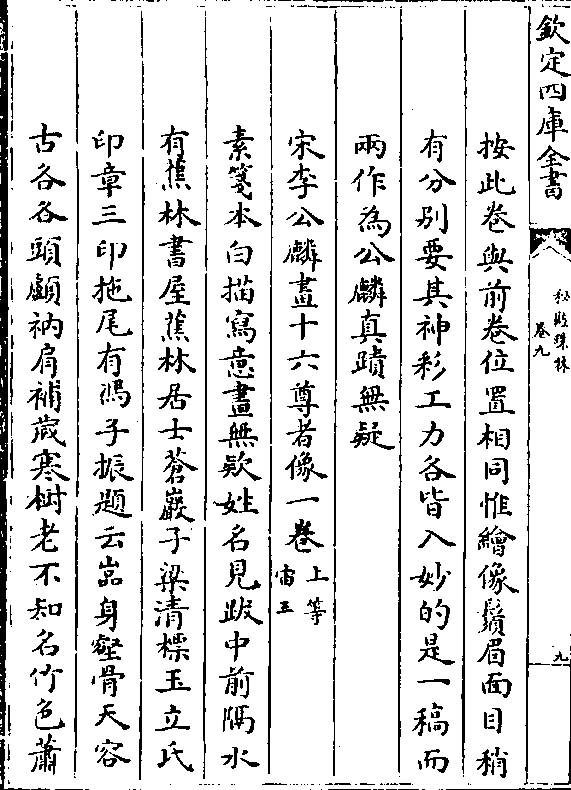 欽定四庫全書
秘殿珠林
卷九
九
按此卷與前卷位置相同惟繪像鬚眉面目稍
有分別要其神彩工力各皆入妙的是一稿而
兩作為公麟真蹟無疑
宋李公麟畫十六尊者像一卷上等
宙五
素箋本白描寫意畫無欵姓名見跋中前隔水
有蕉林書屋蕉林居士蒼巖子梁清標玉立氏
印章三印拖尾有馮子振題云嵓身壑骨天容
古各各頭顱衲肩補歲寒樹老不知名竹色蕭